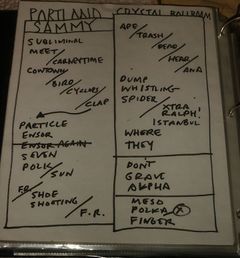 PORTLAND
SAMMY
SUBLIMINAL
MEET/
CARNEYTIME
CONTOWN/
BIRD/
CYCLOPS/
CLAP
PARTICLE
ENSOR
ENSOR AGAIN
SEVEN
POLK/
SUN
EB/
SHOE
SHOOTING/
F.R.
CRYSTAL BALLROOM
APE/
TRASH/
DEAD/
HEAR/
ANA
DUMP
WHISTLING
SPIDER/
XTRA
RALPH!
ISTANBUL
WHERE
THEY
DON'T
GRAVE
ALPHA
MESO
POLKA X
FINGER